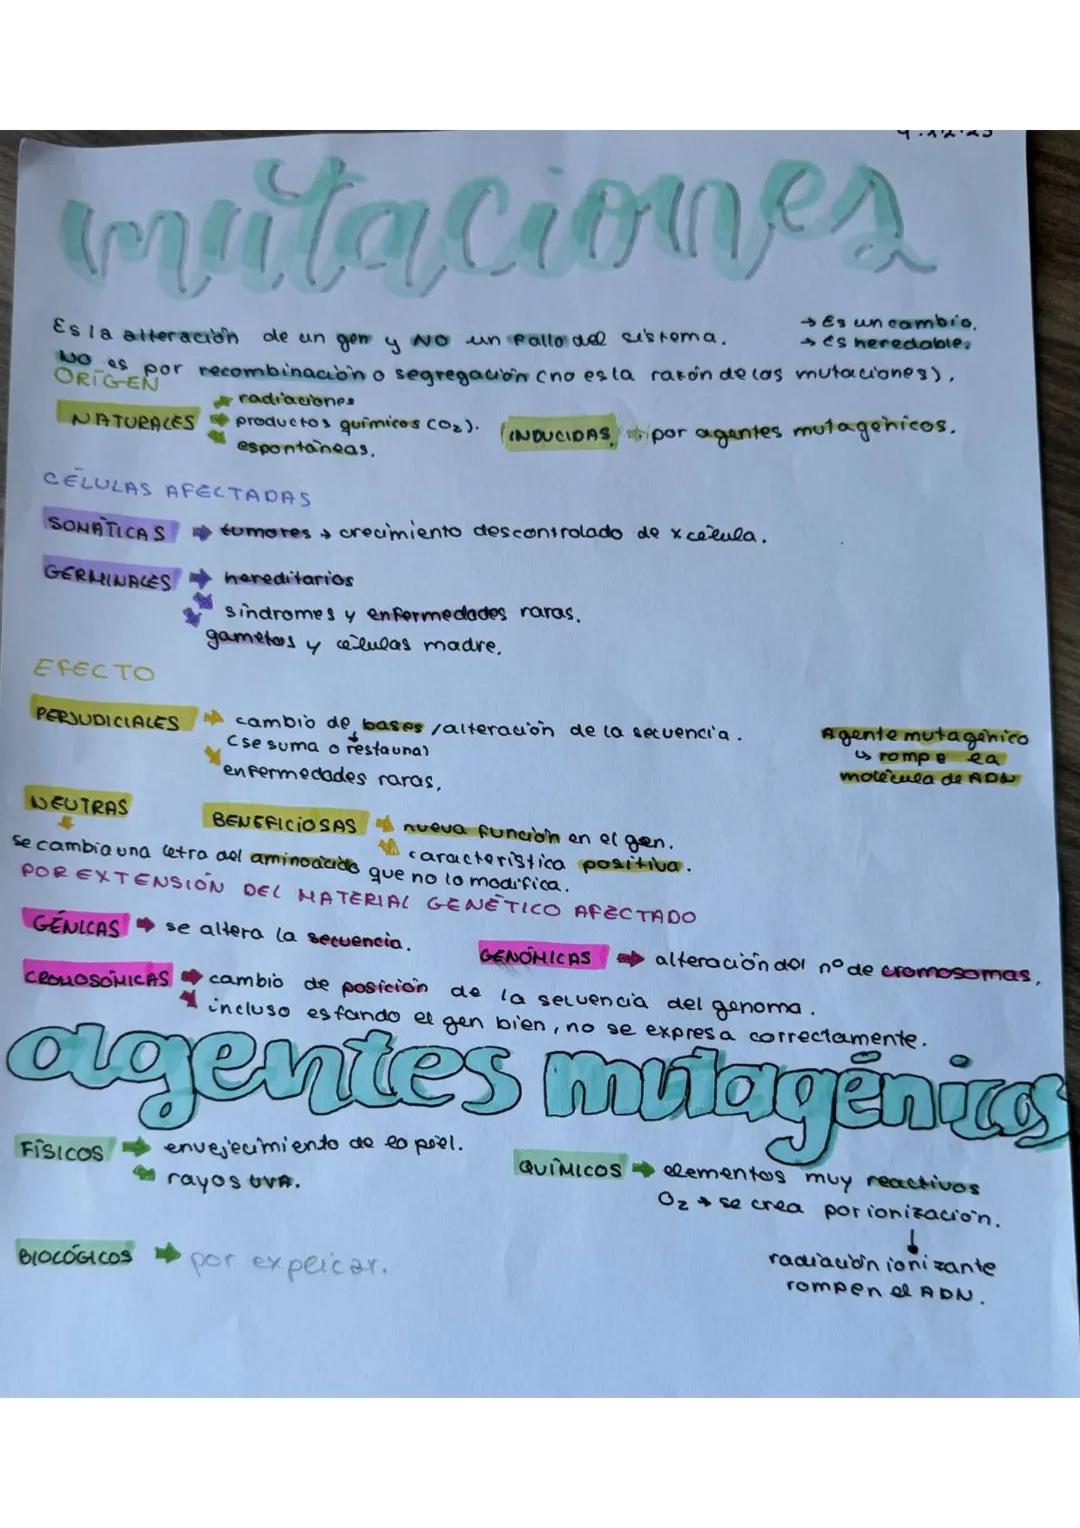 mutaciones
Es la alteración de un gen y NO un fallo del sistema. → Es un cambio.
→ es heredable.
NO es por recombinación o segregación (no es la razón de las mutaciones).
ORIGEN
NATURALES → radiaciones
→ productos químicos (O₂).
→ espontáneas.
INDUCIDAS → por agentes mutagénicos.
CÉLULAS AFECTADAS
SOMÁTICAS → tumores → crecimiento descontrolado de x célula.
GERMINALES → hereditarios
síndromes y enfermedades raras.
gametos y células madre.
EFECTO
PERJUDICIALES → cambio de bases / alteración de la secuencia.
(se suma o resta una)
enfermedades raras.
Agente mutagénico
↳ rompe la
molécula de ADN
NEUTRAS
BENEFICIOSAS → nueva función en el gen.
característica positiva.
se cambia una letra del aminoácido que no lo modifica.
POR EXTENSIÓN DEL MATERIAL GENÉTICO AFECTADO
GÉNICAS → se altera la secuencia.
GENÓMICAS → alteración del nº de cromosomas.
CROMOSÓMICAS → cambio de posición de la secuencia del genoma.
incluso estando el gen bien, no se expresa correctamente.
agentes mutagénicos
FÍSICOS → envejecimiento de la piel.
→ rayos UVA.
QUÍMICOS → elementos muy reactivos
O₂ → se crea por ionización.
↓
radiación ionizante
rompen el ADN.
BIOLÓGICOS → por explicar.